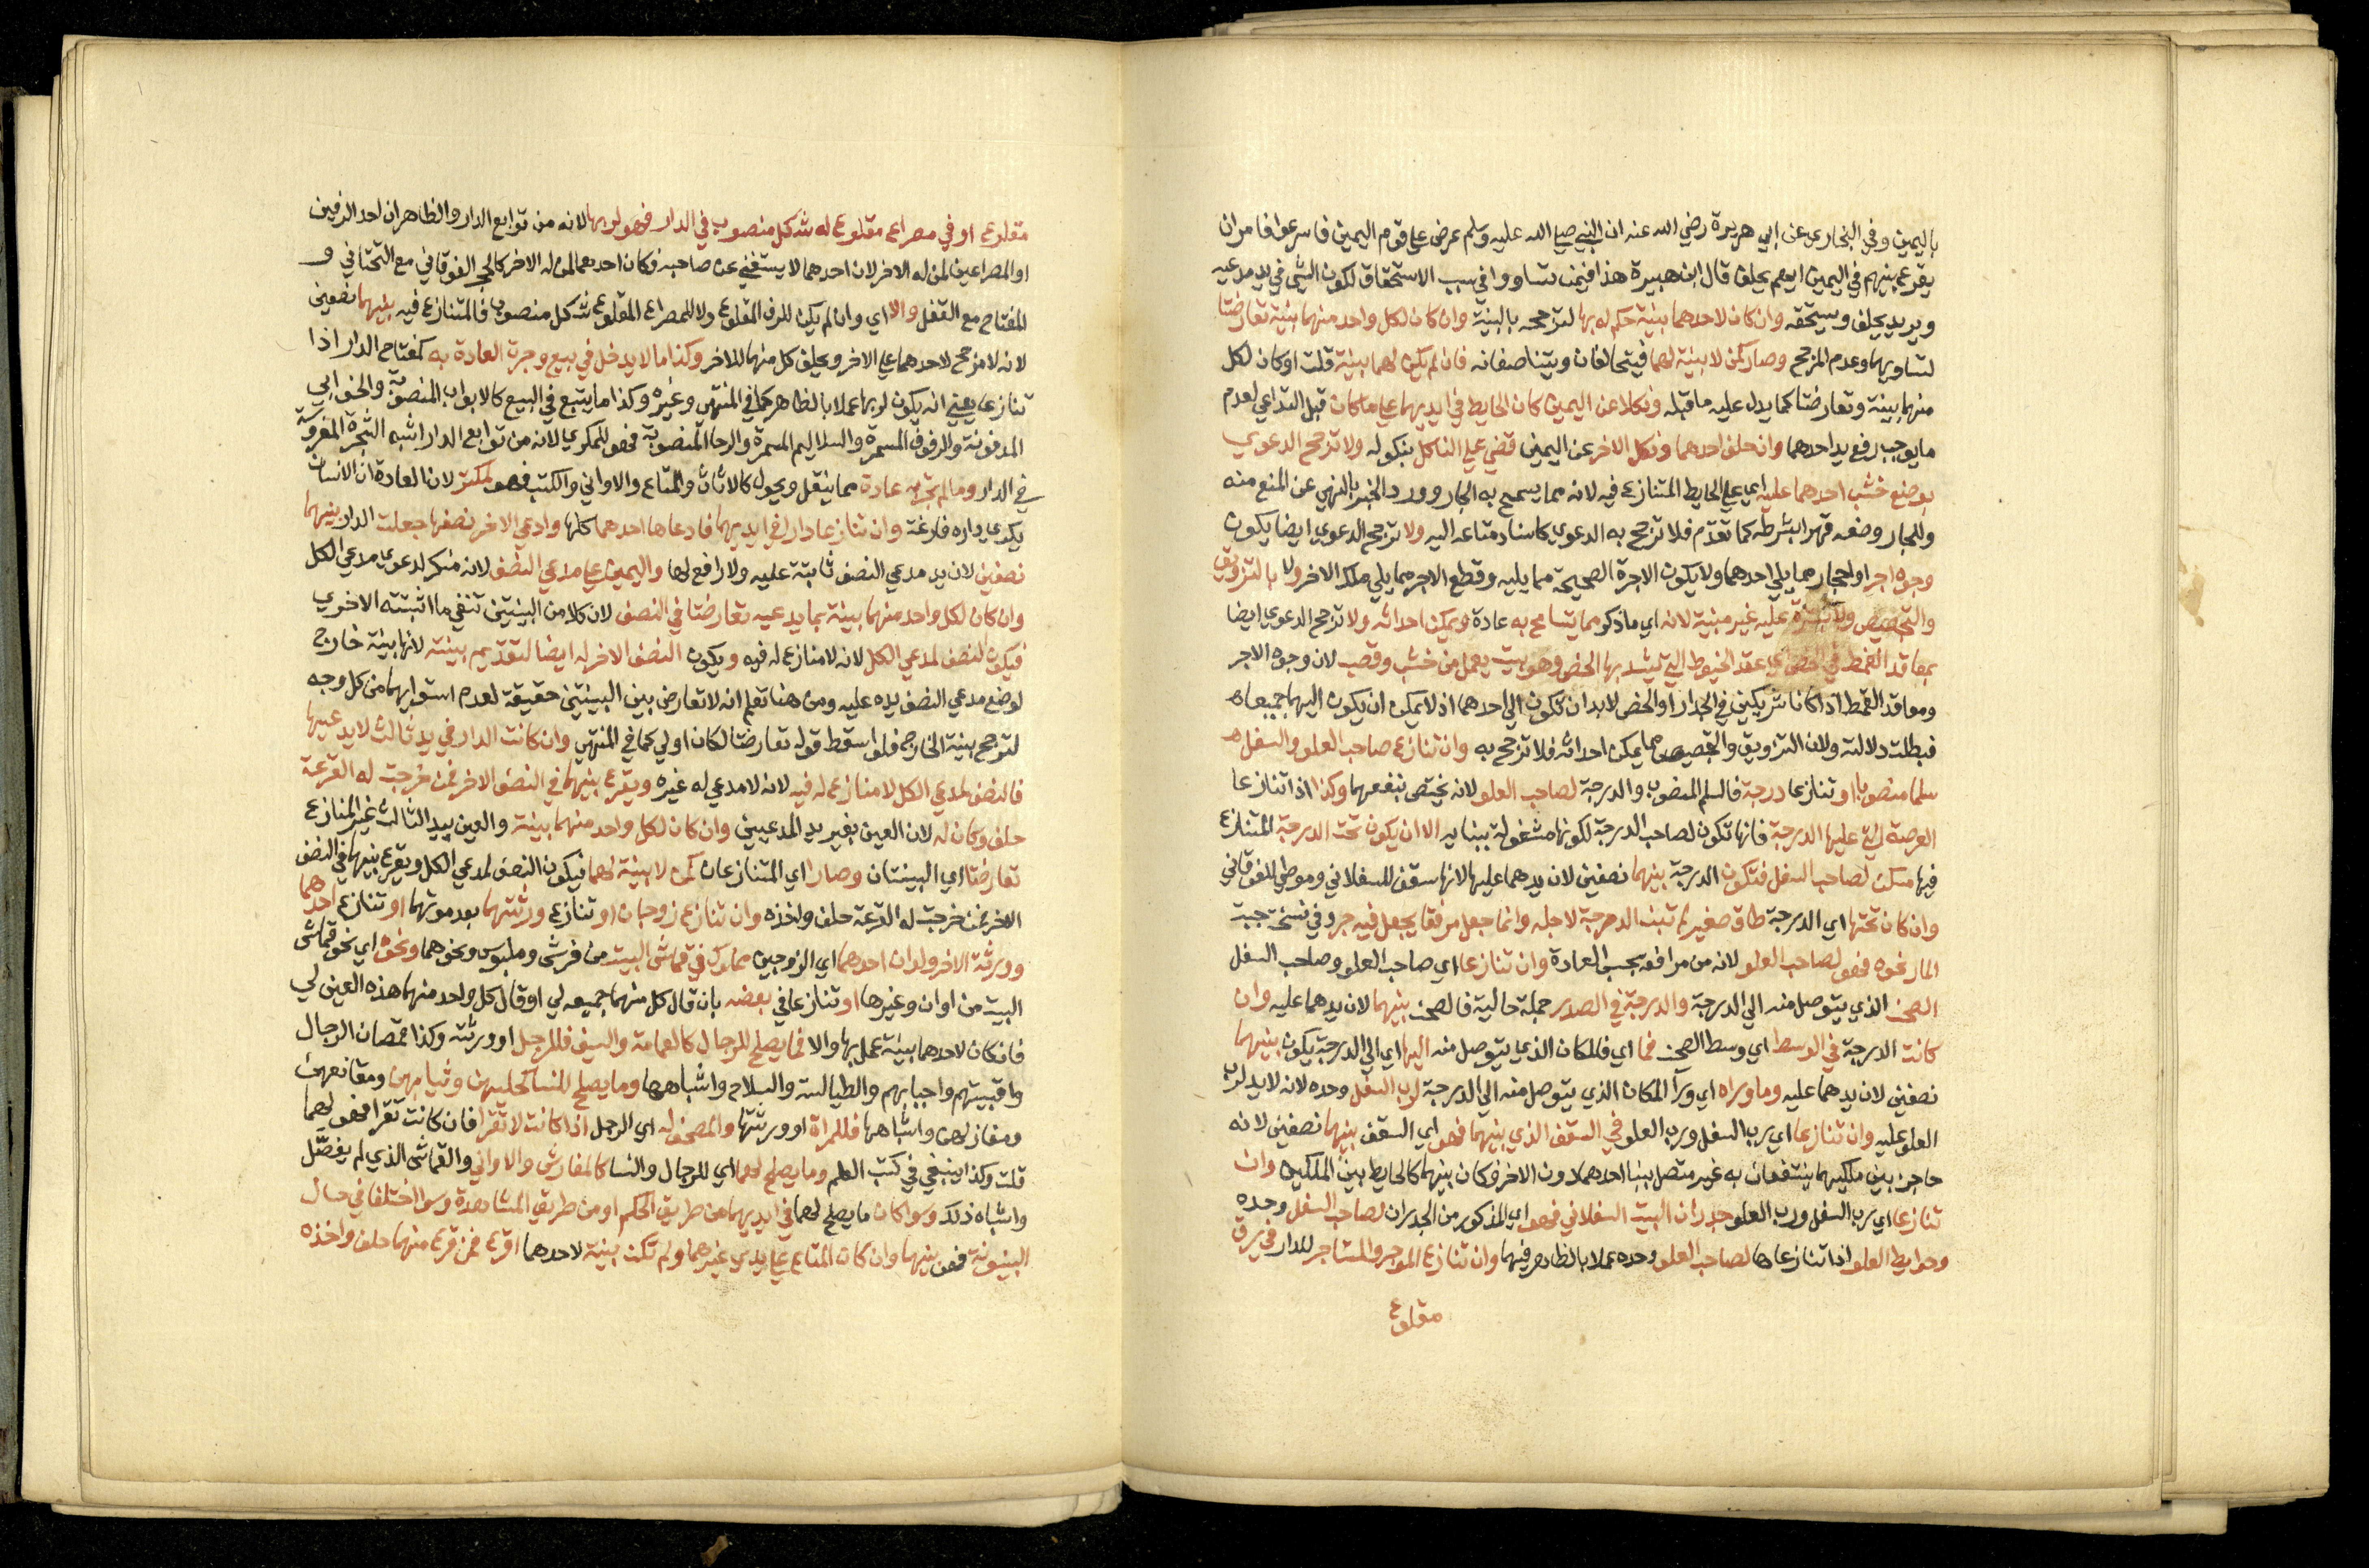 باليمين وفي البخاري عن ابي هريرة رضي الله عنه ان النبي صلي الله عليه وسلم عرض علي قوم اليمين فاسرعوا فامر ان
يقرع بينهم في اليمين ايهم يحلف قال ابن هبيرة هذا فيمن تساووا في سبب الاستحقاق لكون الشي في يد مدعيه
ويريد يحلف ويستحقه وان كان لاحدهما بينة حكم له بها لترجحه بالبينة وان كان لكل واحد منهما بينة تعارضتا
لتساويهما وعدم المرجح وصار كمن لا بينة لهما فيتحالفان ويتناصفانه فان لم يكن لهما بينة قلت او كان لكل
منهما بينة وتعارضتا كما يدل عليه ما قبله ونكلا عن اليمين كان الحايط في ايديهما علي ما كان قبل التداعي لعدم
ما يوجب رفع يد احدهما وان حلف احدهما ونكل الاخر عن اليمين قضي علي الناكل بنكوله ولا ترجح الدعوي
بوضع خشب احدهما عليه اي علي الحايط المتنازع فيه لانه مما يسمح به الجار وورد الخبر بالنهي عن المنع منه
وللجار وضعه قهرا بشرطه كما تقدم فلا ترجح به الدعوي كاسناد متاعه اليه ولا ترجح الدعوي ايضا بكون
وجوه اجر او احجار مما يلي احدهما ولا بكون الاجرة الصحيحة مما يليه وقطع الاجر مما يلي ملك الاخر ولا بالتزويق
والتجصيص ولا بسترة عليه غير مبنية لانه اي ما ذكر مما يتسامح به عادة ويمكن احداثه ولا ترجح الدعوي ايضا
بمعاقد القمط في خص اي عقد الخيوط التي يشد بها الخص وهو بيت يعمل من خشب وقصب لان وجوه الاجر
ومعاقد القمط اذا كانا شريكين في الجدار او الخص لا بد ان تكون الي احدهما اذ لا يمكن ان يكون اليهما جميعا
فبطلت دلالته ولان التزويق والتجصيص مما يمكن احداثه فلا ترجح به وان تنازع صاحب العلو والسفل
سلما منصوبا او تنازعا درجة فالسلم المنصوب والدرجة لصاحب العلو لانه يختص بنفعهما وكذا اذا تنازعا
العرصة التي عليها الدرجة فانها تكون لصاحب الدرجة لكونها مشغولة ببنايه الا ان يكون تحت الدرجة المتنازع
فيها مسكن لصاحب السفل فتكون الدرجة بينهما نصفين لان يدهما عليها لانها سقف للسفلاني وموطي للفوقاني
وان كان تحتها اي الدرجة طاق صغير لم تبن الدرجة لاجله وانما جعل مرفقا يجعل فيه جر وفي نسخة جب
الما ونحوه فهو لصاحب العلو لانه من مرافقه بحسب العادة وان تنازعا اي صاحب العلو وصاحب السفل
الصحن الذي يتوصل منه الي الدرجة والدرجة في الصدر جملة حالية فالصحن بينهما لان يدهما عليه وان
كانت الدرجة في الوسط اي وسط الصحن فما اي فالمكان الذي يتوصل منه اليها اي الي الدرجة يكون بينهما
نصفين لان يدهما عليه وما وراه اي ورا المكان الذي يتوصل منه الي الدرجة لرب السفل وحده لانه لا يد لرب
العلو عليه وان تنازعا اي رب السفل ورب العلو في السقف الذي بينهما فهو اي السقف بينهما نصفين لانه
حاجز بين ملكيهما ينتفعان به غير متصل ببنا احدهما دون الاخر فكان بينهما كالحايط بين الملكين وان
تنازعا اي رب السفل ورب العلو جدران البيت السفلاني فهو اي المذكور من الجدران لصاحب السفل وحده
وحوايط العلو اذا تنازعاها لصاحب العلو وحده عملا بالظاهر فيهما وان تنازع الموجر والمستاجر للدار في رف
مقلوع
مقلوع او في مصراع مقلوع له شكل منصوب في الدار فهو لربها لانه من توابع الدار والظاهر ان احد الرفين
او المصراعين لمن له الاخر لان احدهما لا يستغني عن صاحبه فكان احدهما لمن له الاخر كالحجر الفوقاني مع التحتاني و
المفتاح مع القفل والا اي وان لم يكن للرف المقلوع ولا للمصراع المقلوع شكل منصوب فالمتنازع فيه بينهما نصفين
لانه لا مرجح لاحدهما علي الاخر ويحلف كل منهما للاخر وكذا ما لا يدخل في بيع وجرت العادة به كمفتاح الدار اذا
تنازعا يعني انه يكون لربها عملا بالظاهر كما في المنتهي وغيره وكذا ما يتبع في البيع كالابواب المنصوبة والخوابي
المدفونة والرفوف المسمرة والسلاليم المسمرة والرحا المنصوبة فهو للمكري لانه من توابع الدار اشبه الشجرة المغروسة
في الدار وما لم تجر به عادة مما ينقل ويحول كالاثاث والمتاع والاواني والكتب فهو لمكتر لان العادة ان الانسان
يكري داره فارغة وان تنازعا دارا في ايديهما فادعاها احدهما كلها وادعي الاخر نصفها جعلت الدار بينهما
نصفين لان يد مدعي النصف ثابتة عليه ولا رافع لها واليمين علي مدعي النصف لانه منكر لدعوي مدعي الكل
وان كان لكل واحد منهما بينة بما يدعيه تعارضتا في النصف لان كلا من البينتين تنفي ما اثبتته الاخري
فيكون النصف لمدعي الكل لانه لا منازع له فيه ويكون النصف الاخر له ايضا لتقديم بينته لانها بينة خارج
لوضع مدعي النصف يده عليه ومن هنا تعلم انه لا تعارض بين البينتين حقيقة لعدم استوايهما من كل وجه
لترجح بينة الخارج فلو اسقط قوله تعارضتا لكان اولي كما في المنتهي وان كانت الدار في يد ثالث لا يدعيها
فالنصف لمدعي الكل لا منازع له فيه لانه لا مدعي له غيره ويقرع بينهما في النصف الاخر فمن خرجت له القرعة
حلف وكان له لان العين بغير يد المدعيين وان كان لكل واحد منهما بينة والعين بيد الثالث غير المنازع
تعارضتا اي البينتان وصارا اي المتنازعان كمن لا بينة لهما فيكون النصف لمدعي الكل ويقرع بينهما في النصف
الاخر فمن خرجت له القرعة حلف واخذه وان تنازع زوجان او تنازع ورثتهما بعد موتهما او تنازع احدهما
وورثة الاخر ولو ان احدهما اي الزوجين مملوك في قماش البيت من فرش وملبوس ونحوهما ونحوه اي نحو قماش
البيت من اوان وغيرها او تنازعا في بعضه بان قال كل منهما جميعه لي او قال كل واحد منهما هذه العين لي
فان كان لاحدهما بينة عمل بها والا فما يصلح للرجال كالعمامة والسيف فللرجل او ورثته وكذا قمصان الرجال
واقبيتهم وجبابهم والطيالسة والسلاح واشباهها وما يصلح للنسا كحليهن وثيابهن ومقانعهن
ومغازلهن واشباهها فللمراة او ورثتها والمصحف له اي الرجل اذا كانت لا تقرا فان كانت تقرا فهو لهما
قلت وكذا ينبغي في كتب العلم وما يصلح لهما اي للرجال والنسا كالمفارش والاواني والقماش الذي لم يفصل
واشباه ذلك وسوا كان ما يصلح لهما في ايديهما من طريق الحكم او من طريق المشاهدة وسوا اختلفا في حال
البينونة فهو بينهما وان كان المتاع علي يدي غيرهما ولم تكن بينة لاحدهما اقرع فمن قرع منهما حلف واخذه